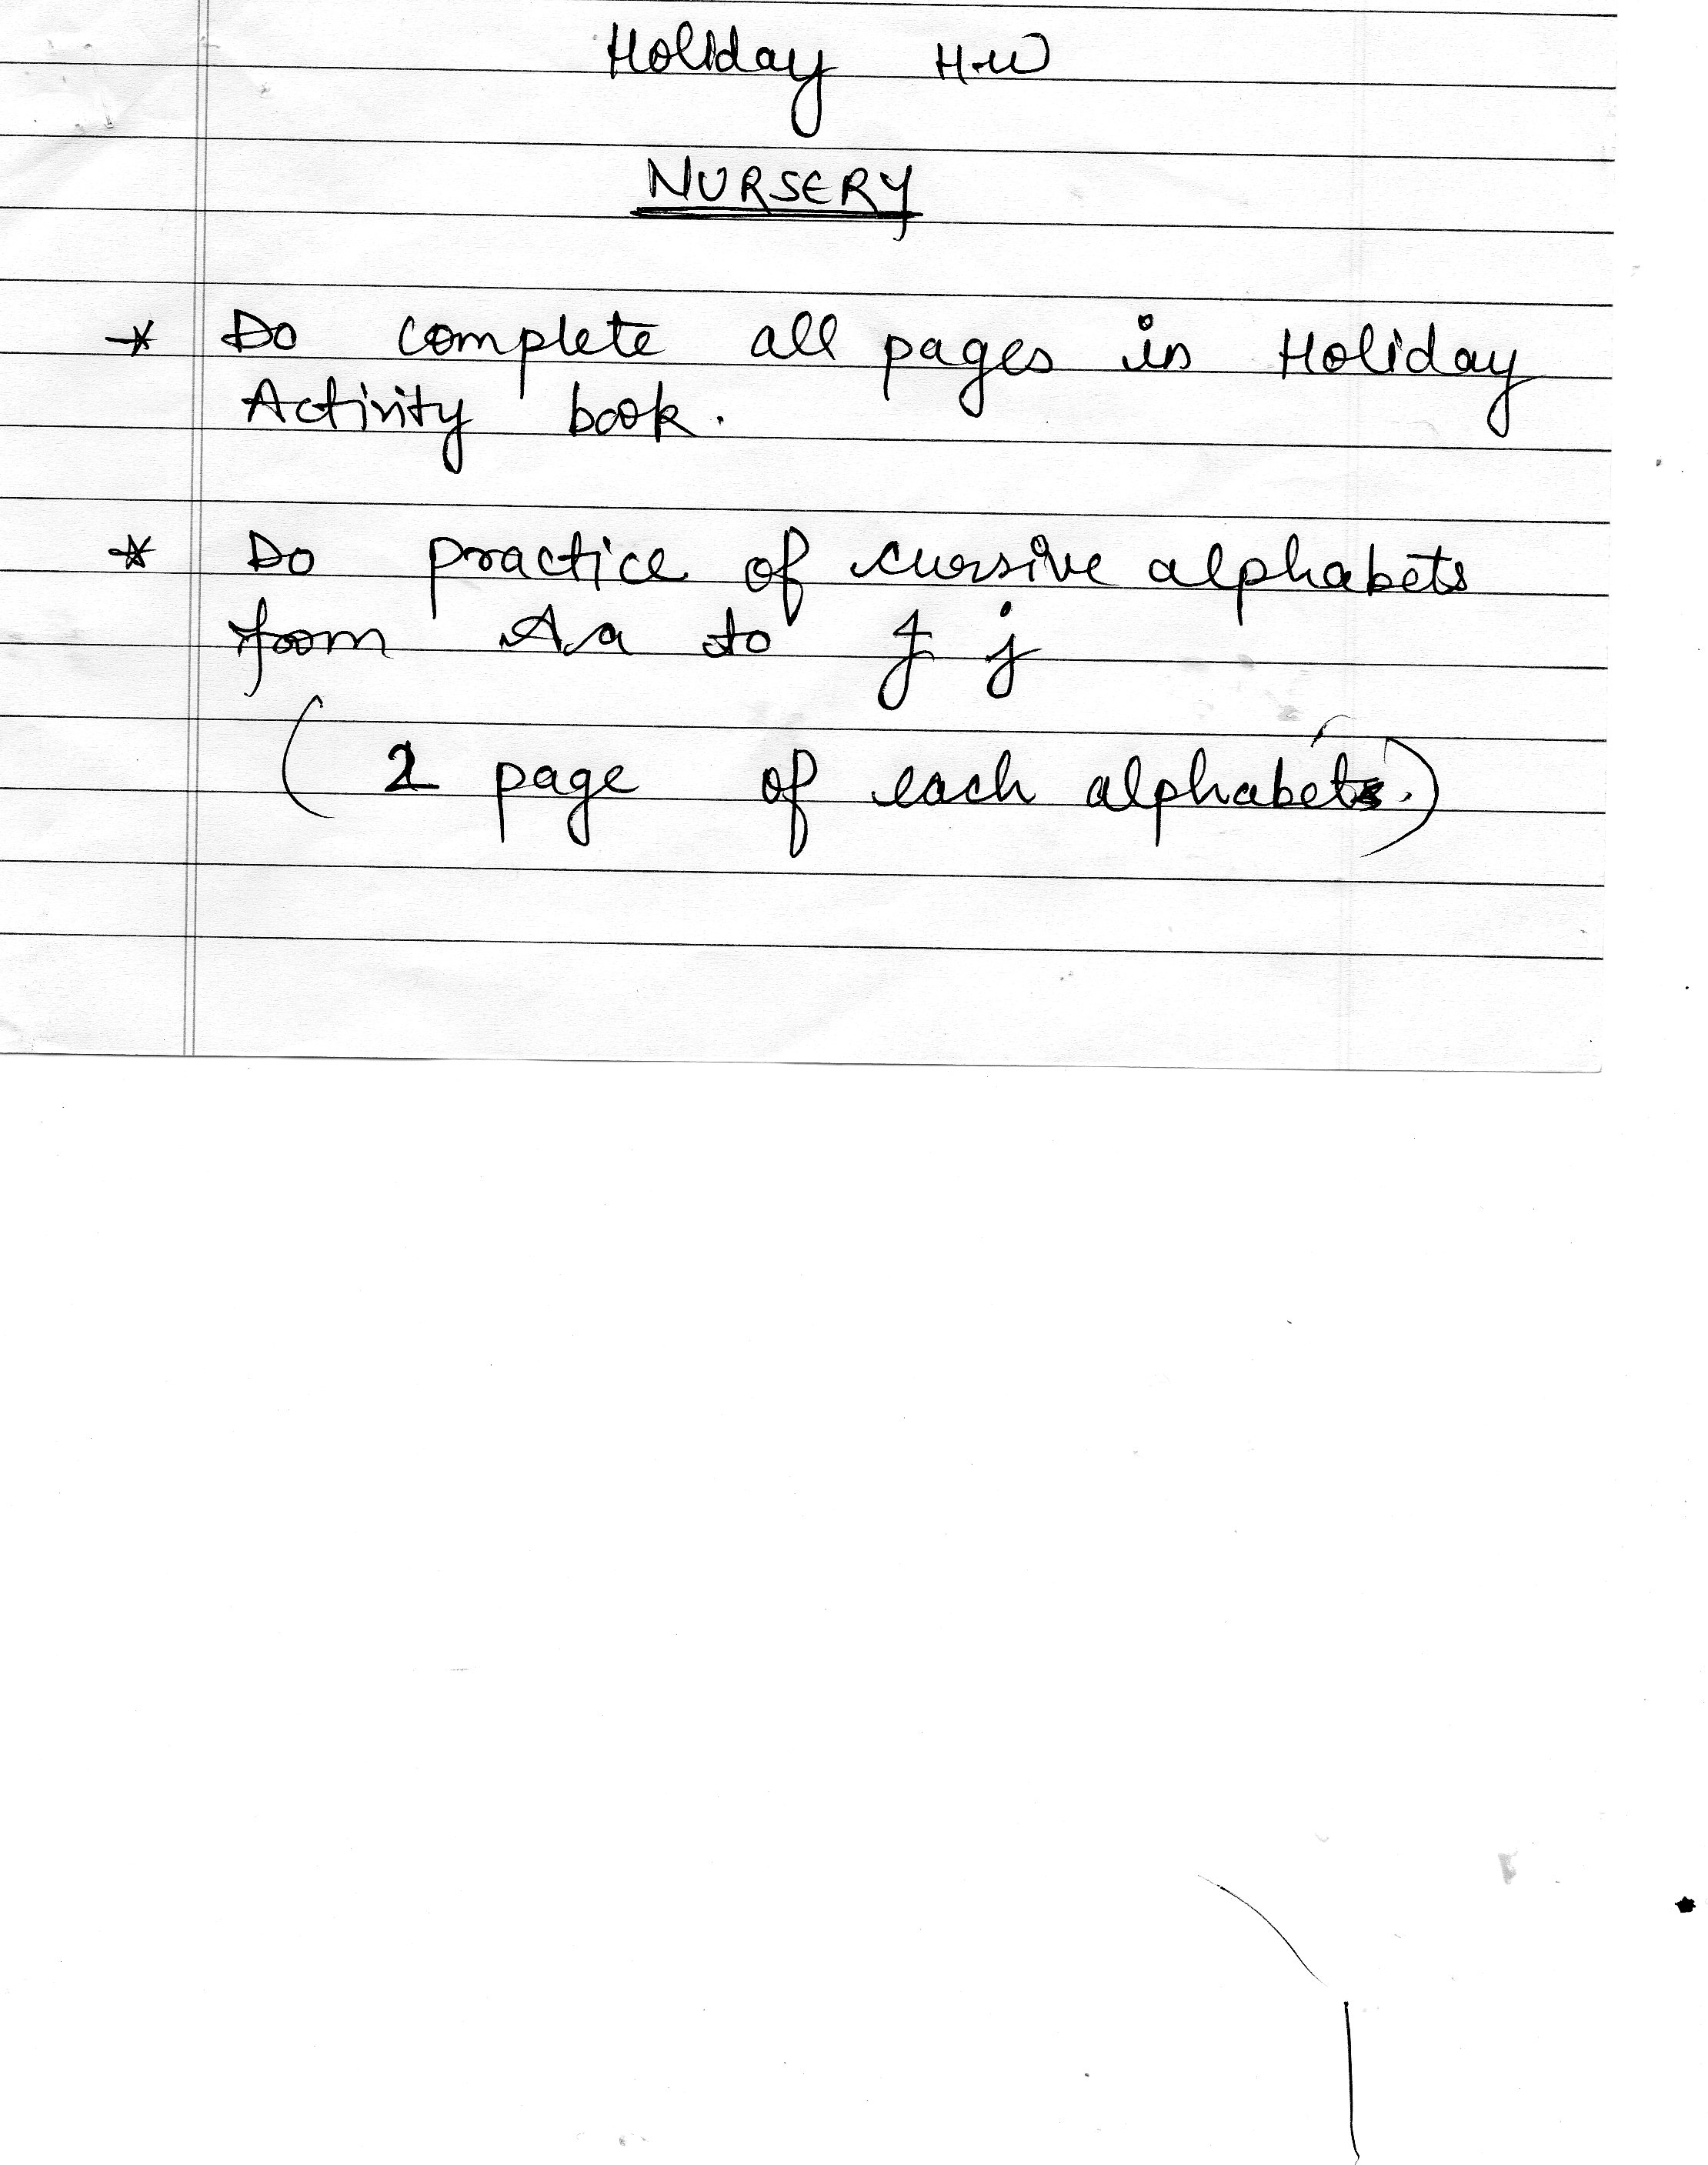 Holiday H.W
NURSERY
* Do complete all pages in Holiday
Activity book.
* Do practice of cursive alphabets
from Aa to J j
( 2 page of each alphabets.)